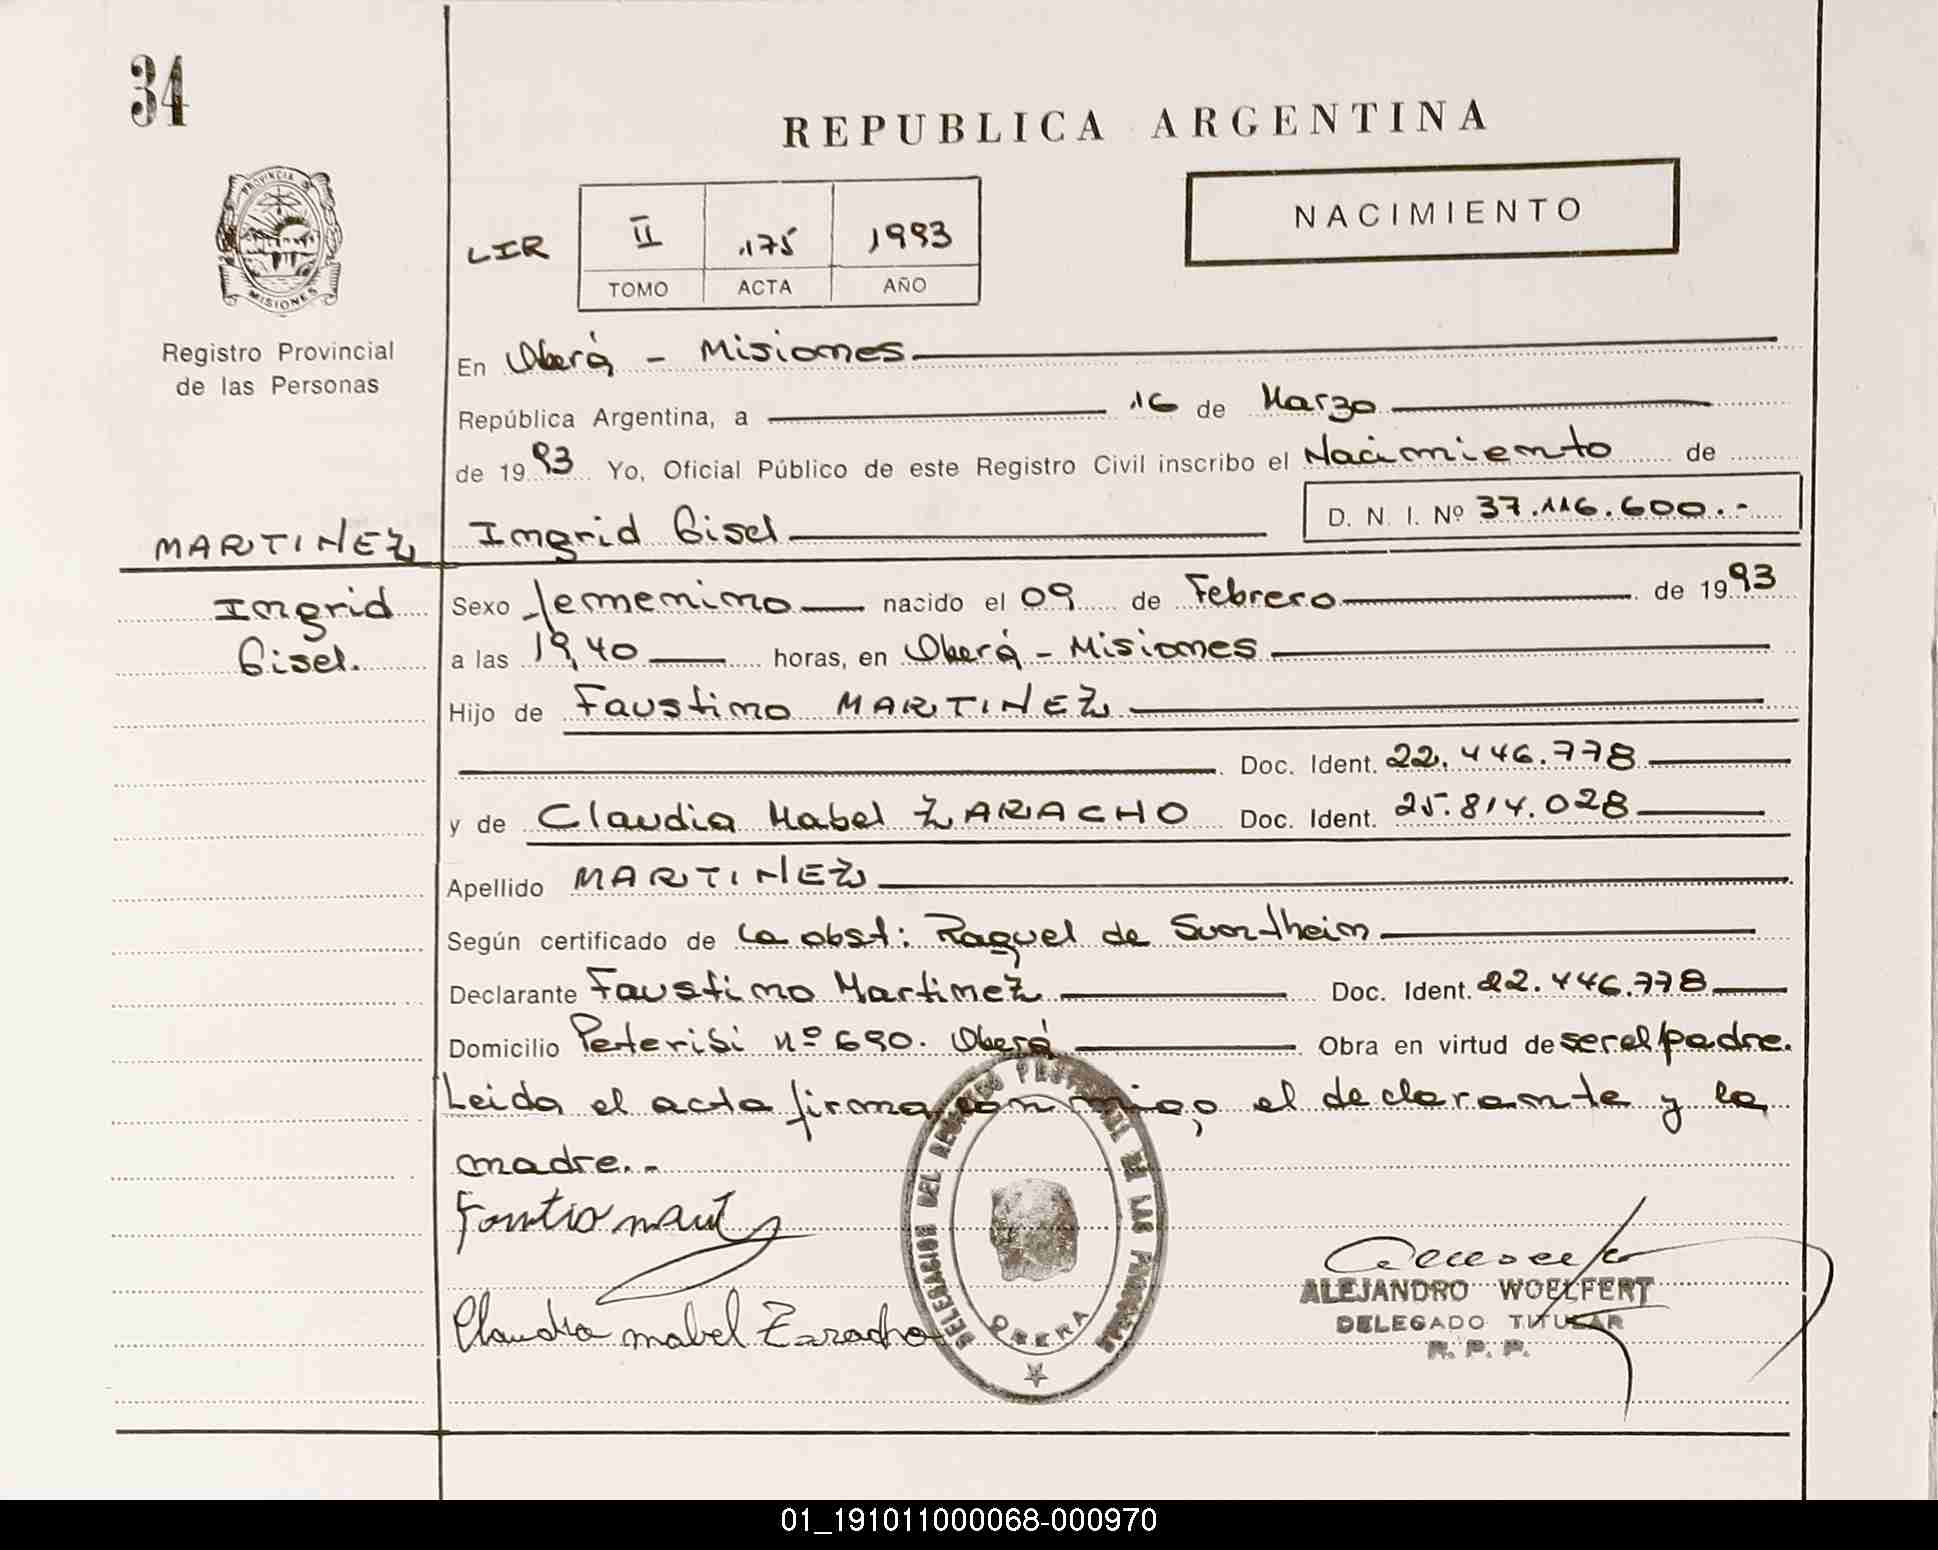 34
REPUBLICA ARGENTINA
NACIMIENTO
PROVINCIA D
MISIONES
LIR II 175 1993
TOMO ACTA AÑO
Registro Provincial
de las Personas
En Oberá - Misiones
República Argentina, a 16 de Marzo
de 1993 Yo, Oficial Público de este Registro Civil inscribo el Nacimiento de
D. N. I. Nº 37.116.600.-
MARTINEZ Ingrid Gisel
Ingrid
Gisel.
Sexo femenino nacido el 09 de Febrero de 1993
a las 19,40 horas, en Oberá - Misiones
Hijo de Faustino MARTINEZ
Doc. Ident. 22.446.778
y de Claudia Mabel ZARACHO Doc. Ident. 25.814.028
Apellido MARTINEZ
Según certificado de la obst: Raquel de
Declarante Faustino Martinez Doc. Ident. 22.446.778
Domicilio nº 690. Oberá Obra en virtud de ser el padre.
Leida el acta firma conmigo el declarante y la
madre.-
Claudia mabel Zaracho
DELEGACION DEL REGISTRO PROVINCIAL DE LAS PERSONAS
OBERA
ALEJANDRO WOELFERT
DELEGADO TITULAR
R. P. P.
01_191011000068-000970